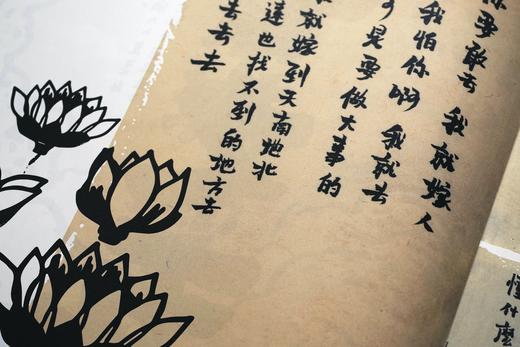 要敢去 我就嫁人
我怕你啊 我就去
是要做大事的
就嫁到天南地北
也找不到的地方去
去去去
懂什麼